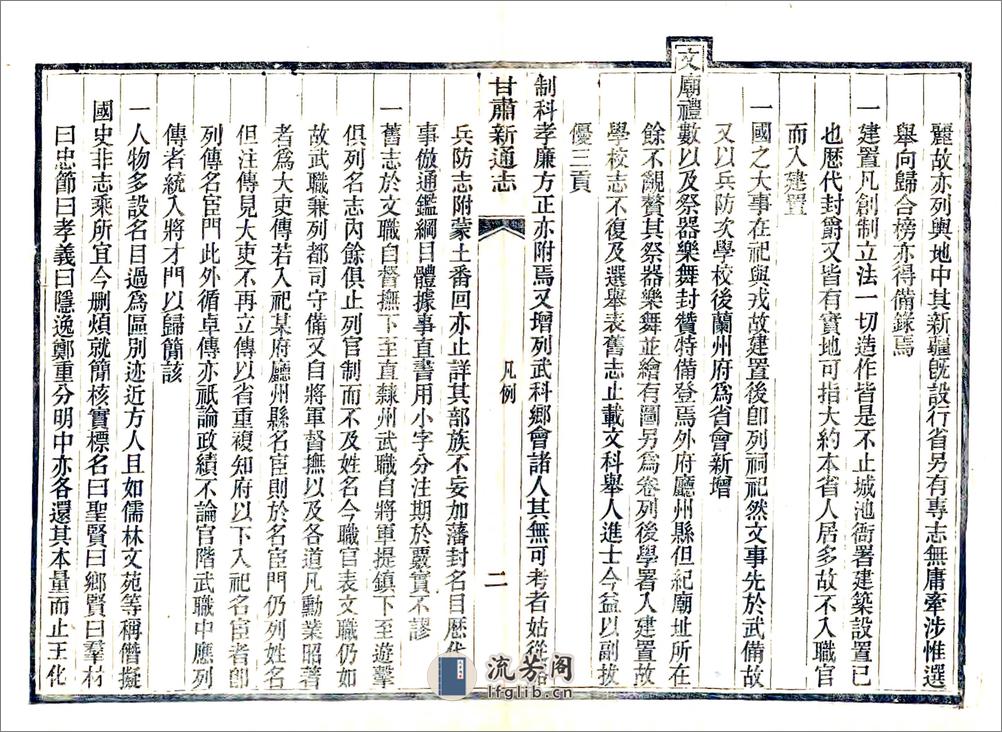 麗故亦列輿地中其新疆既設行省另有專志無庸牽涉惟選
舉向歸合榜亦得備錄焉
一建置凡創制立法一切造作皆是不止城池衙署建築設置已
也歷代封爵又皆有實地可指大約本省人居多故不入職官
而入建置
一國之大事在祀與戎故建置後卽列祠祀然文事先於武備故
又以兵防次學校後蘭州府爲省會新增
文廟禮數以及祭器樂舞封贊特備登焉外府廳州縣但紀廟址所在
餘不覼贅其祭器樂舞並繪有圖另爲卷列後學署人建置故
學校志不復及選舉表舊志止載文科舉人進士今益以副拔
優三貢
制科孝廉方正亦附焉又增列武科鄉會諸人其無可考者姑從
甘肅新通志
凡例
二
兵防志附蒙土番回亦止詳其部族不妄加藩封名目歷代
事倣通鑑綱目體據事直書用小字分注期於覈實不謬
一舊志於文職自督撫下至直隸州武職自將軍提鎮下至遊擊
俱列名志內餘俱止列官制而不及姓名今職官表文職仍如
故武職兼列都司守備又自將軍督撫以及各道凡勳業昭著
者爲大吏傳若入祀某府廳州縣名臣則於名臣門仍列姓名
但注傳見大吏不再立傳以省重複知府以下入祀名臣者卽
列傳名臣門此外循卓傳亦祇論政績不論官階武職中應列
傳者統入將才門以歸簡該
一人物多設名目過爲區別迹近方人且如儒林文苑等稱僭擬
國史非志乘所宜今删煩就簡核實標名曰聖賢曰鄉賢曰羣材
曰忠節曰孝義曰隱逸鄭重分明中亦各還其本量而止王化
流芳阁
lfglib.cn